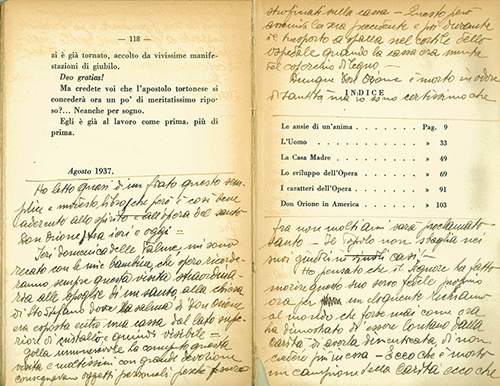 — 118 —
zi è già tornato, accolto da vivissime manife-
stazioni di giubilo.
Deo gratias!
Ma credete voi che l'apostolo tortonese si
concederà ora un po' di meritatissimo ripo-
so?... Neanche per sogno.
Egli è già al lavoro come prima, più di
prima.
Agosto 1937.
Ho letto quasi di un fiato questo sem-
plice e modesto libro che però è così bene
aderente allo spirito e all'opera del santo
Don Orione, fra ieri e oggi =
Ieri domenica delle Palme, mi sono
recato con le mie bambine, che spero ricorde-
ranno sempre questa visita straordina-
ria alle spoglie di un santo, alla chiesa
di Sto Stefano dove la salma di Don Orione
era esposta entro una cassa dal lato supe-
riore di cristallo e quindi visibile =
folla innumerevole ha compiuto questa
visita e moltissimi con grande devozione
consegnavano oggetti personali perché fossero
strofinati sulla cassa — Questo però
avveniva la sera precedente e poi durante
il trasporto a spalla nel cortile dello
ospedale quando la cassa era munita
del coperchio di legno —
Dunque Don Orione è morto in odore
di santità ma io sono certissimo che
INDICE
Le ansie di un'anima . . . . . . . . Pag. 9
L'Uomo . . . . . . . . » 33
La Casa Madre . . . . . . . . » 49
Lo sviluppo dell'Opera . . . . . . . . » 69
I caratteri dell'Opera . . . . . . . . » 91
Don Orione in America . . . . . . . . » 103
fra non molti anni sarà proclamato
santo — Il popolo non sbaglia nei
suoi giudizi in casi!
Ho pensato che il Signore ha fatto
morire questo suo servo fedele proprio
ora per un eloquente richiamo
al mondo che forse mai come ora
ha dimostrato di essere lontano dalla
carità, di averla dimenticata, di non
credere più in essa — Ecco che è morto
un campione della carità ecco che